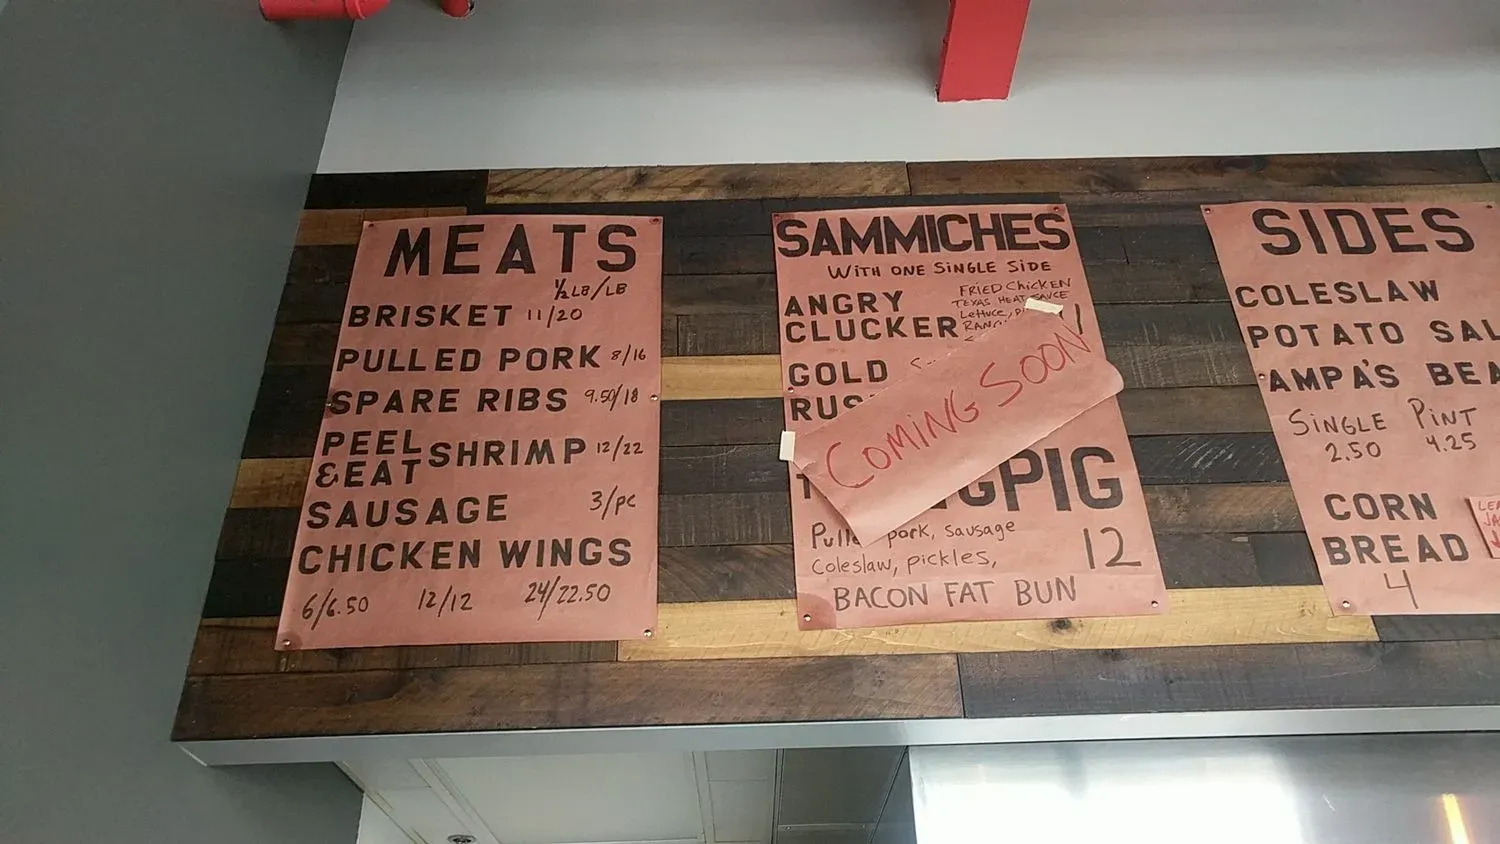 MEATS
½ LB/LB
BRISKET 11/20
PULLED PORK 8/16
SPARE RIBS 9.50/18
PEEL
&EAT SHRIMP 12/22
SAUSAGE 3/pc
CHICKEN WINGS
6/6.50 12/12 24/22.50
SAMMICHES
WITH ONE SINGLE SIDE
ANGRY
CLUCKER
FRIED CHICKEN
TEXAS HEAT SAUCE
Lettuce,
GOLD
COMING SOON
PIG
pork, sausage
Coleslaw, pickles,
12
BACON FAT BUN
SIDES
COLESLAW
POTATO SAL
AMPA'S BEA
SINGLE PINT
2.50 4.25
CORN
BREAD
4